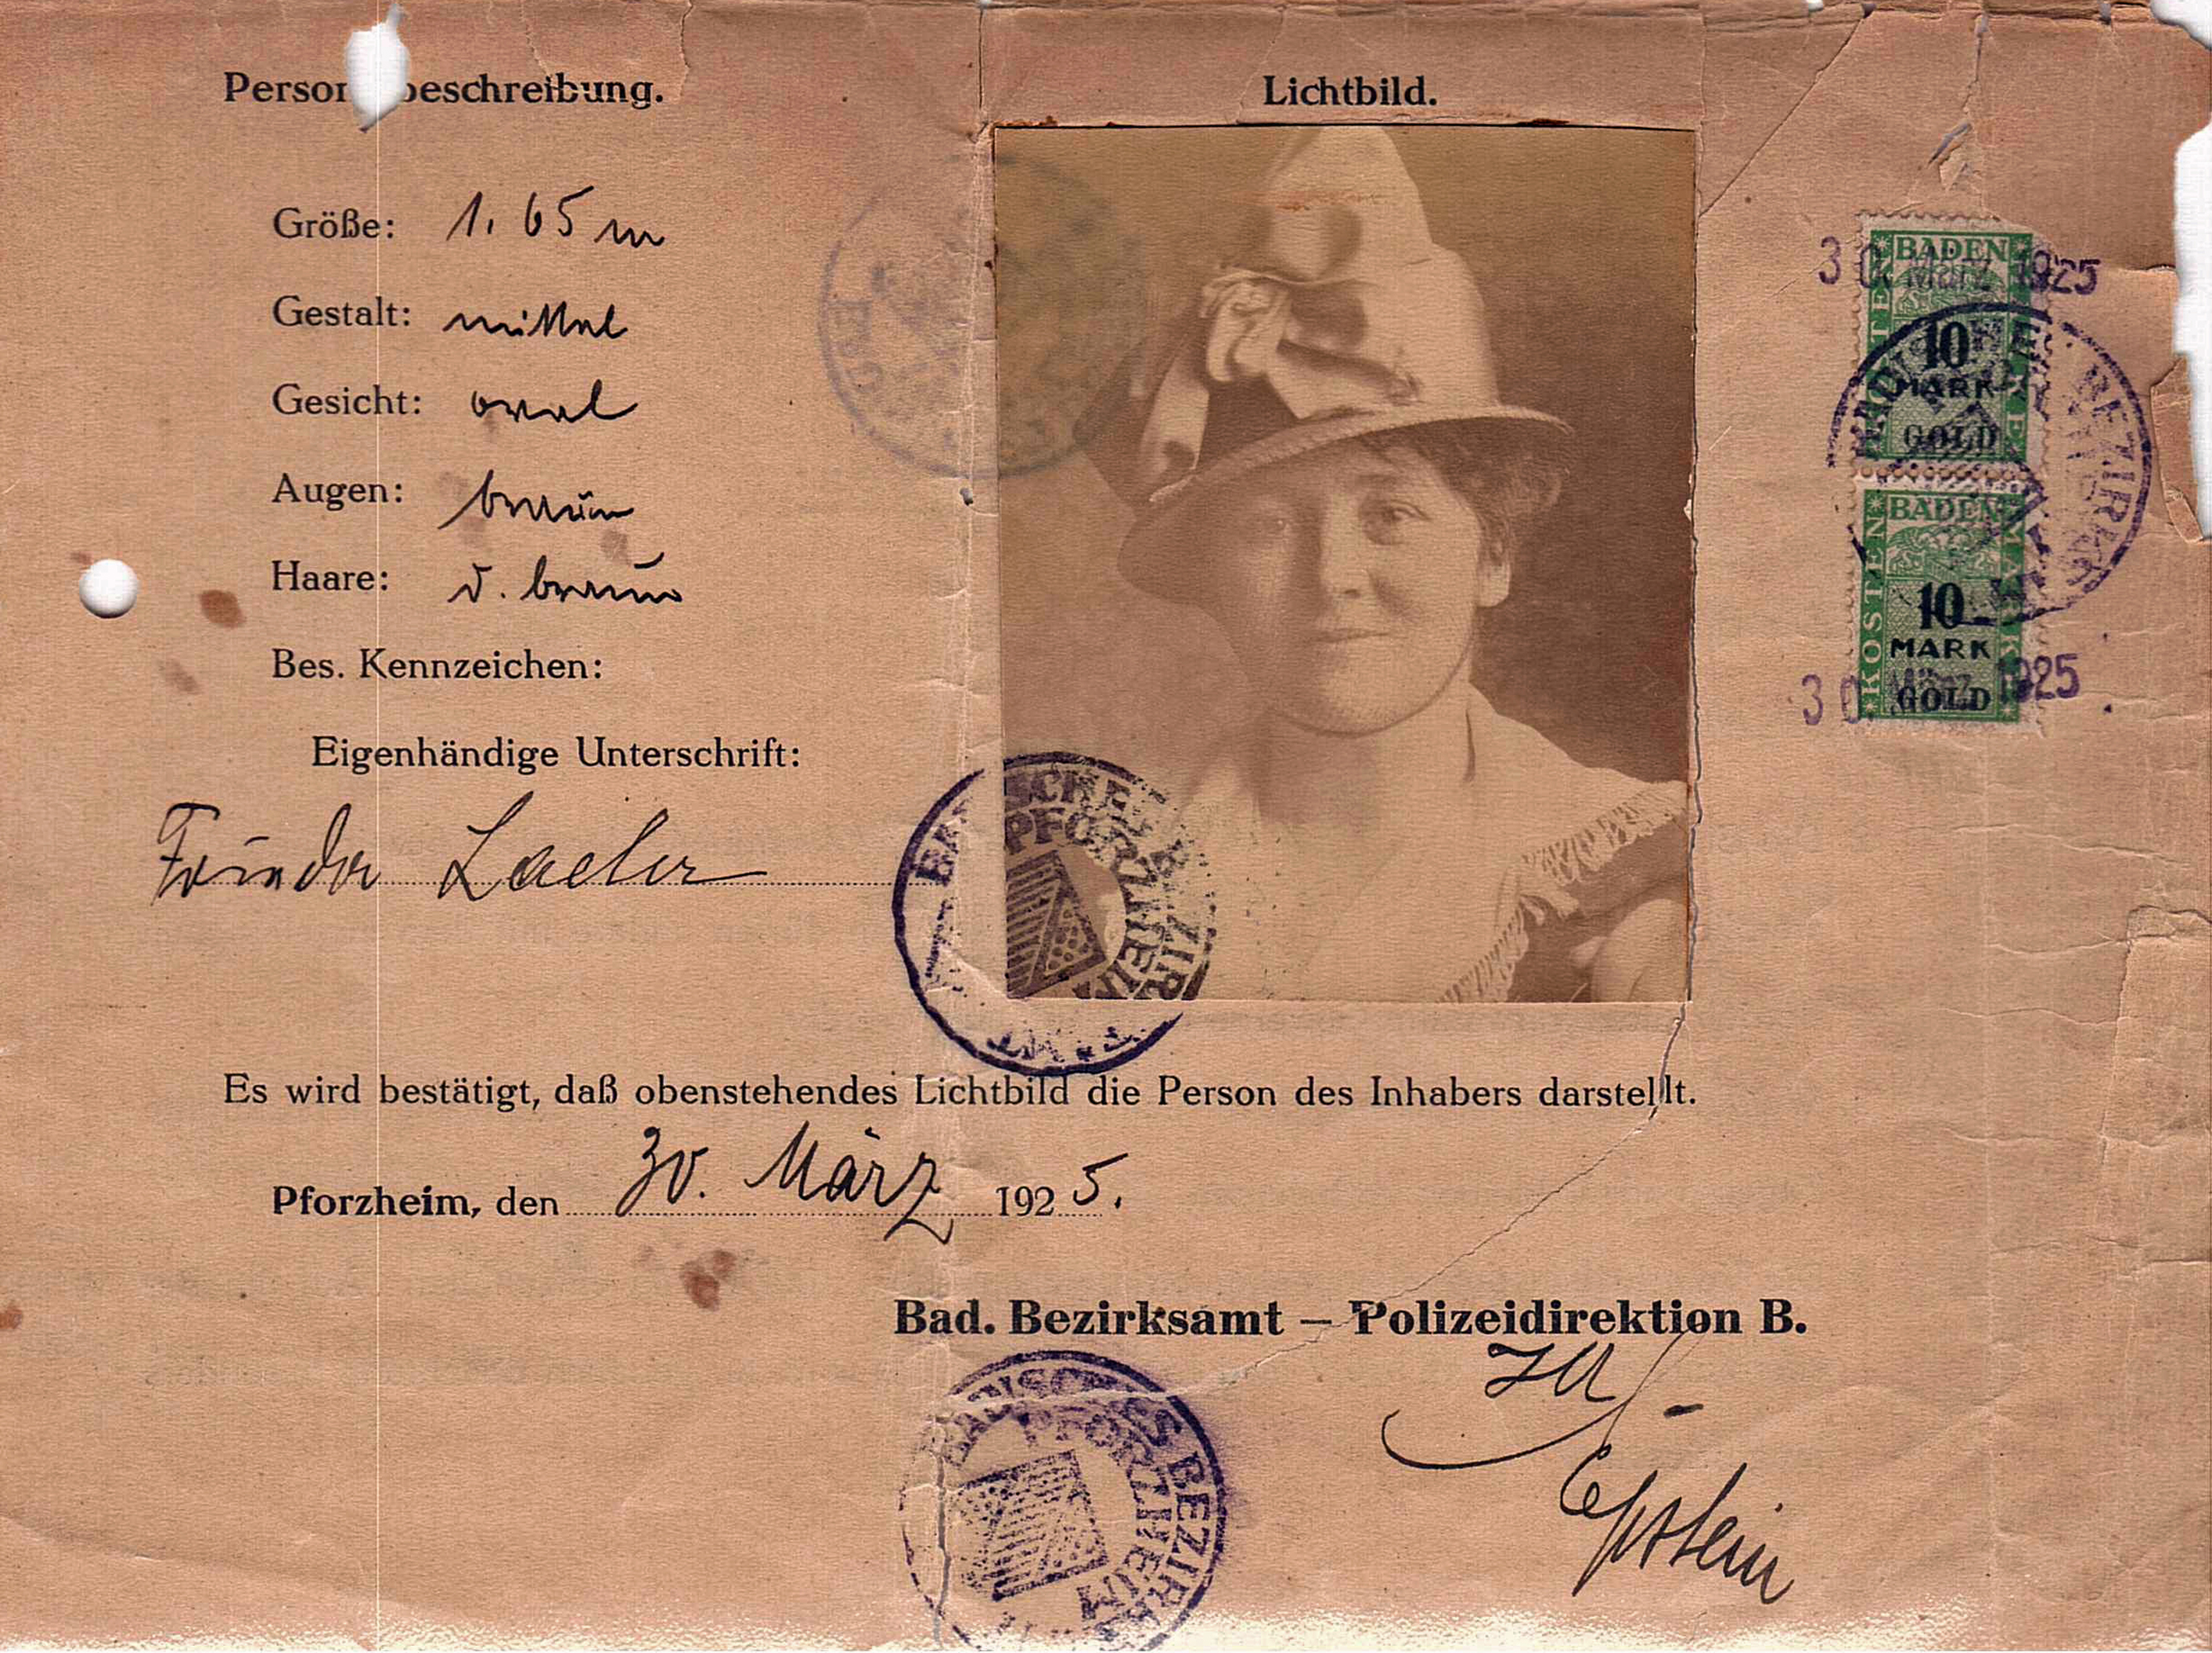 Perso beschreibung.
Größe: 1.65 m
Gestalt: mittel
Gesicht: oval
Augen: braun
Haare: d. braun
Bes. Kennzeichen:
Eigenhändige Unterschrift:
Frieda
Lichtbild.
BADISCHES BEZIRKSAMT
PFORZHEIM
30. März 1925
BADEN
KOSTENMARKE
10
MARK
GOLD
BADISCHES BEZIRKSAMT
BADEN
KOSTENMARKE
10
MARK
GOLD
30. März 1925
Es wird bestätigt, daß obenstehendes Lichtbild die Person des Inhabers darstellt.
Pforzheim, den 30. März 1925.
Bad. Bezirksamt — Polizeidirektion B.
BADISCHES BEZIRKSAMT
PFORZHEIM
IA
Epstein